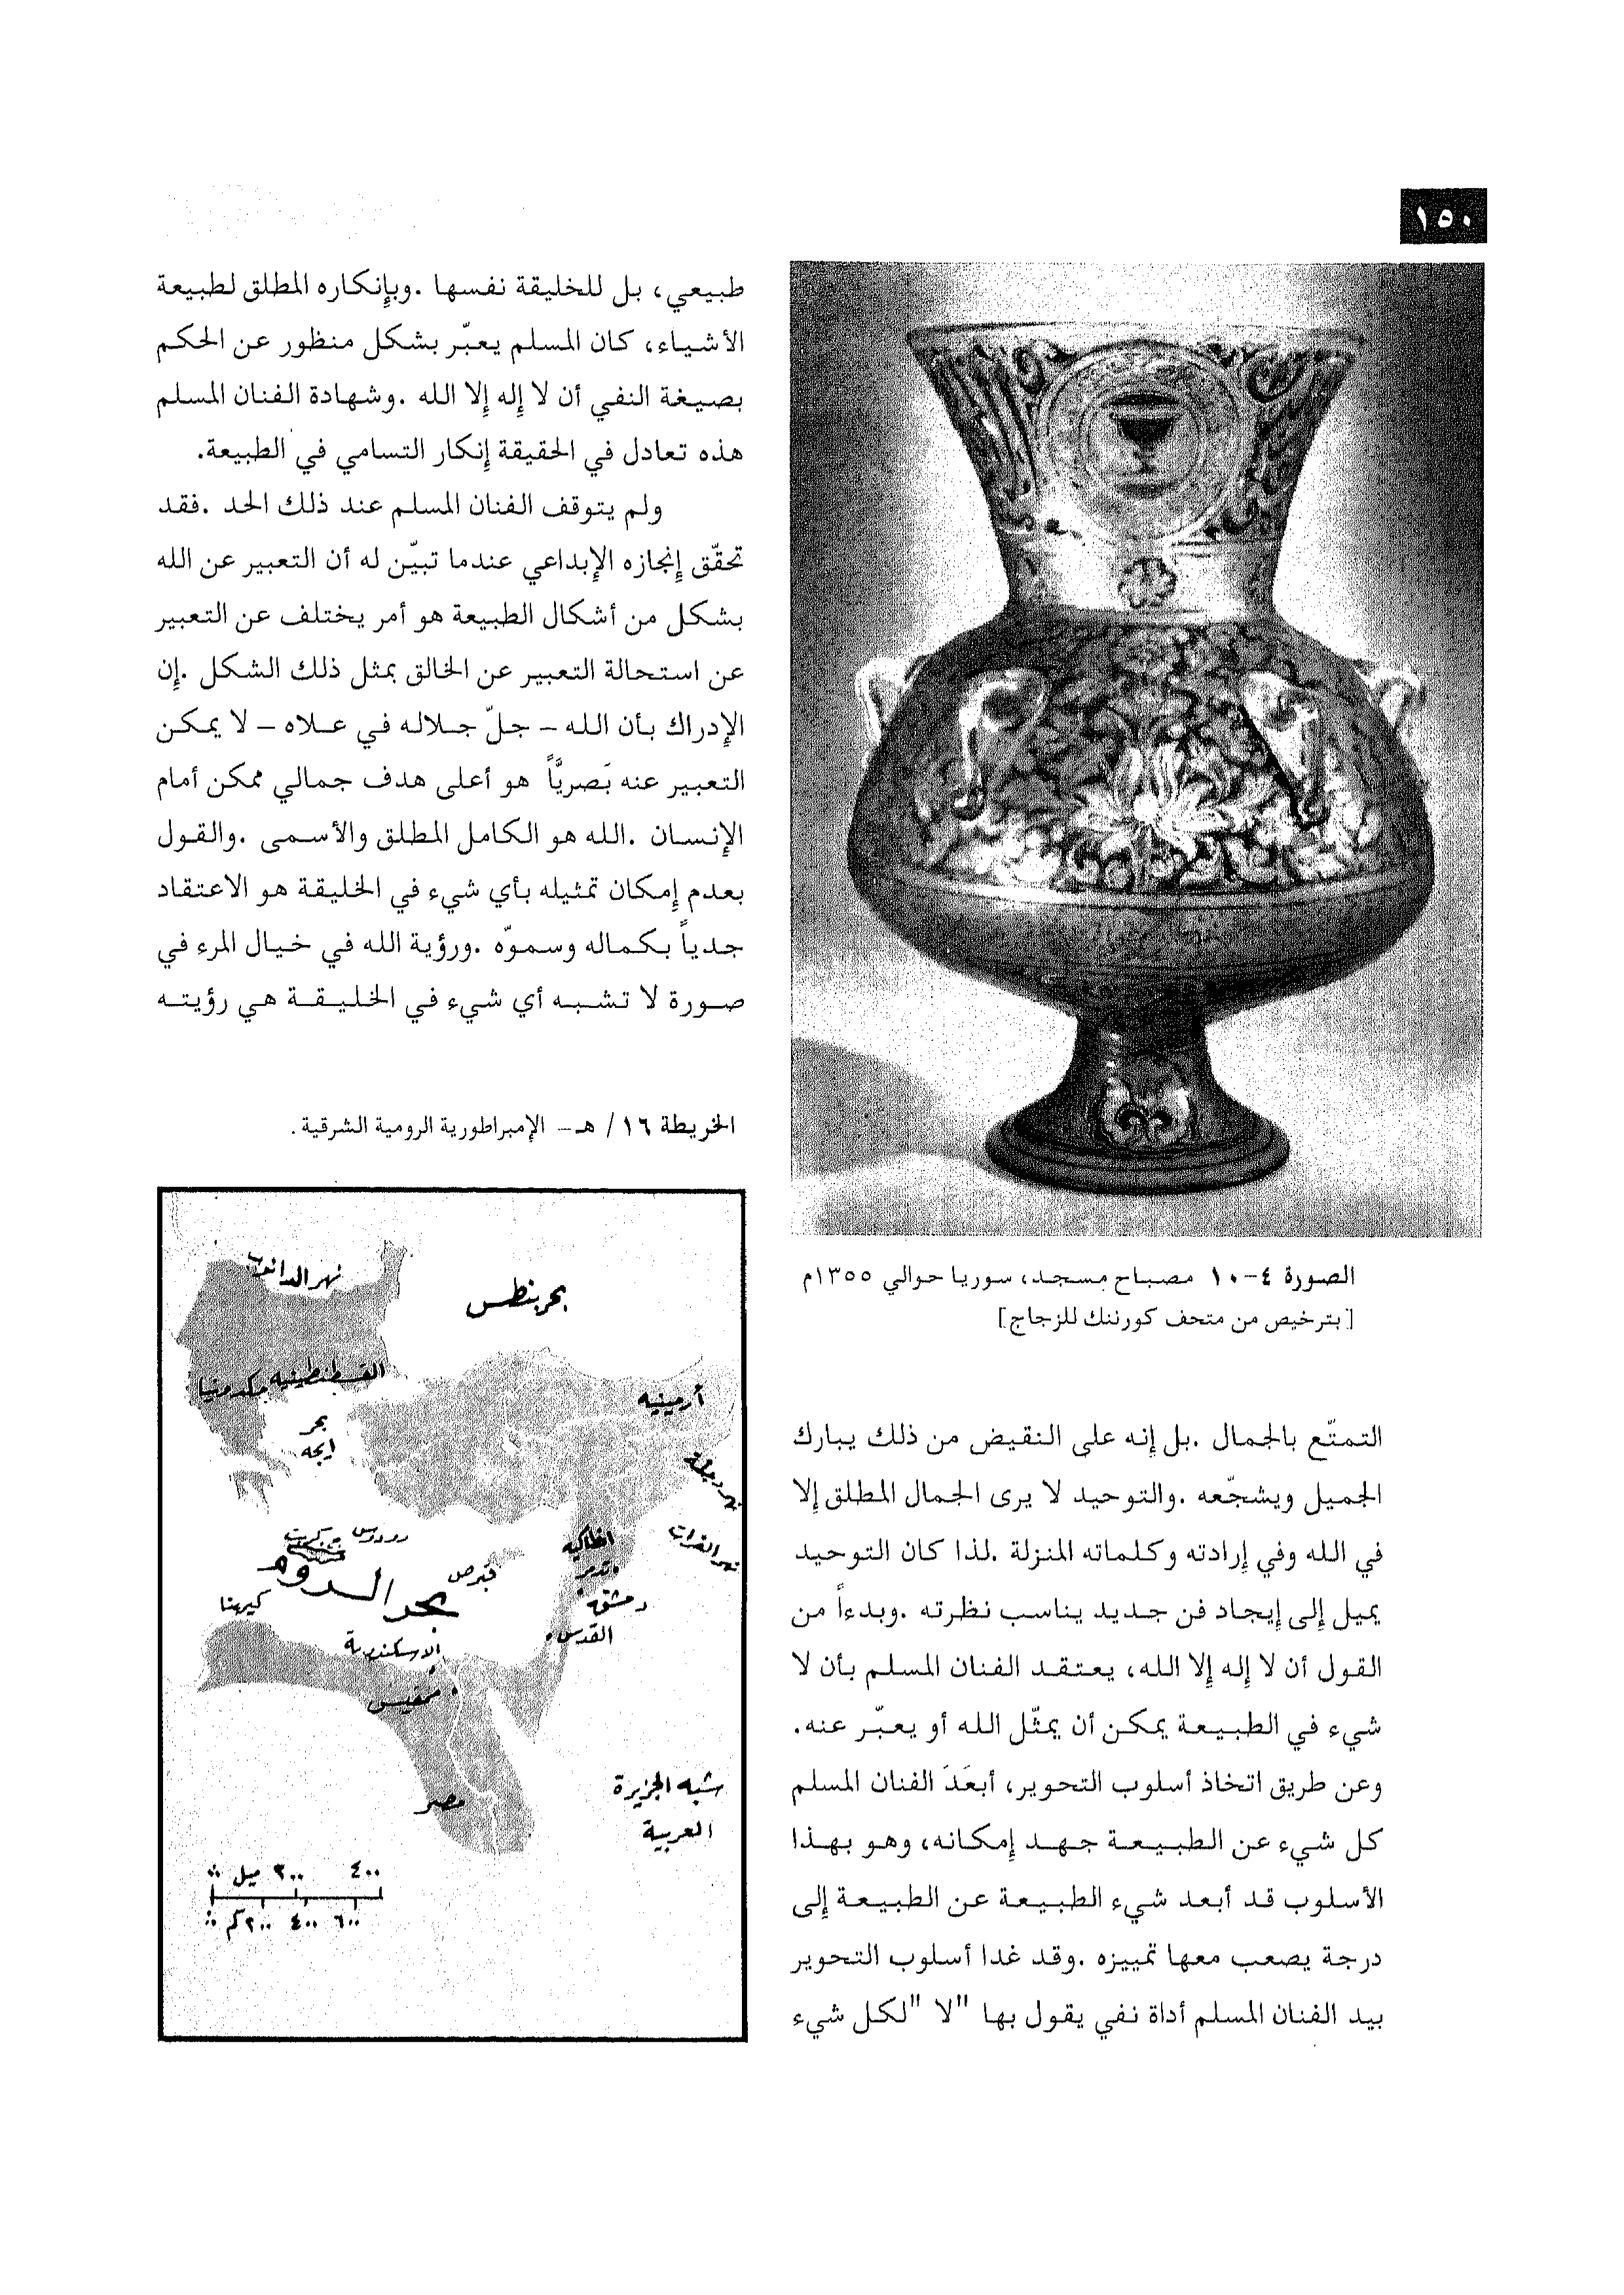 ١٥٠
الصورة ٤-١٠ مصباح مسجد، سوريا حوالي ١٣٥٥م
[بترخيص من متحف كورننك للزجاج]
التمتّع بالجمال .بل إنه على النقيض من ذلك يبارك
الجميل ويشجّعه .والتوحيد لا يرى الجمال المطلق إلا
في الله وفي إرادته وكلماته المنزلة .لذا كان التوحيد
يميل إلى إيجاد فن جديد يناسب نظرته .وبدءاً من
القول أن لا إله إلا الله، يعتقد الفنان المسلم بأن لا
شيء في الطبيعة يمكن أن يمثّل الله أو يعبّر عنه.
وعن طريق اتخاذ أسلوب التحوير، أبعَدَ الفنان المسلم
كل شيء عن الطبيعة جهد إمكانه، وهو بهذا
الأسلوب قد أبعد شيء الطبيعة عن الطبيعة إلى
درجة يصعب معها تمييزه .وقد غدا أسلوب التحوير
بيد الفنان المسلم أداة نفي يقول بها "لا "لكل شيء
طبيعي، بل للخليقة نفسها .وبإنكاره المطلق لطبيعة
الأشياء، كان المسلم يعبّر بشكل منظور عن الحكم
بصيغة النفي أن لا إله إلا الله .وشهادة الفنان المسلم
هذه تعادل في الحقيقة إنكار التسامي في الطبيعة.
ولم يتوقف الفنان المسلم عند ذلك الحد .فقد
تحقّق إنجازه الإبداعي عندما تبيّن له أن التعبير عن الله
بشكل من أشكال الطبيعة هو أمر يختلف عن التعبير
عن استحالة التعبير عن الخالق بمثل ذلك الشكل .إن
الإدراك بأن الله – جلّ جلاله في علاه – لا يمكن
التعبير عنه بَصريًّاً هو أعلى هدف جمالي ممكن أمام
الإنسان .الله هو الكامل المطلق والأسمى .والقول
بعدم إمكان تمثيله بأي شيء في الخليقة هو الاعتقاد
جدياً بكماله وسموّه .ورؤية الله في خيال المرء في
صورة لا تشبه أي شيء في الخليقة هي رؤيته
الخريطة ١٦/ هـ – الإمبراطورية الرومية الشرقية.
نهر الدانوب
بحر بنطس
القسطنطينيه
مكدونيا
أرمينيه
بحر
ايجه
نهر دجلة
نهر الفرات
رودوس
كريت
انطاكيه
قبرص
تدمر
بحر الروم
دمشق
كيرينا
القدس
الاسكندرية
ممفيس
شبه الجزيرة
العربية
مصر
٤٠٠ ٢٠٠ ميل
٦٠٠ ٤٠٠ ٢٠٠ كم